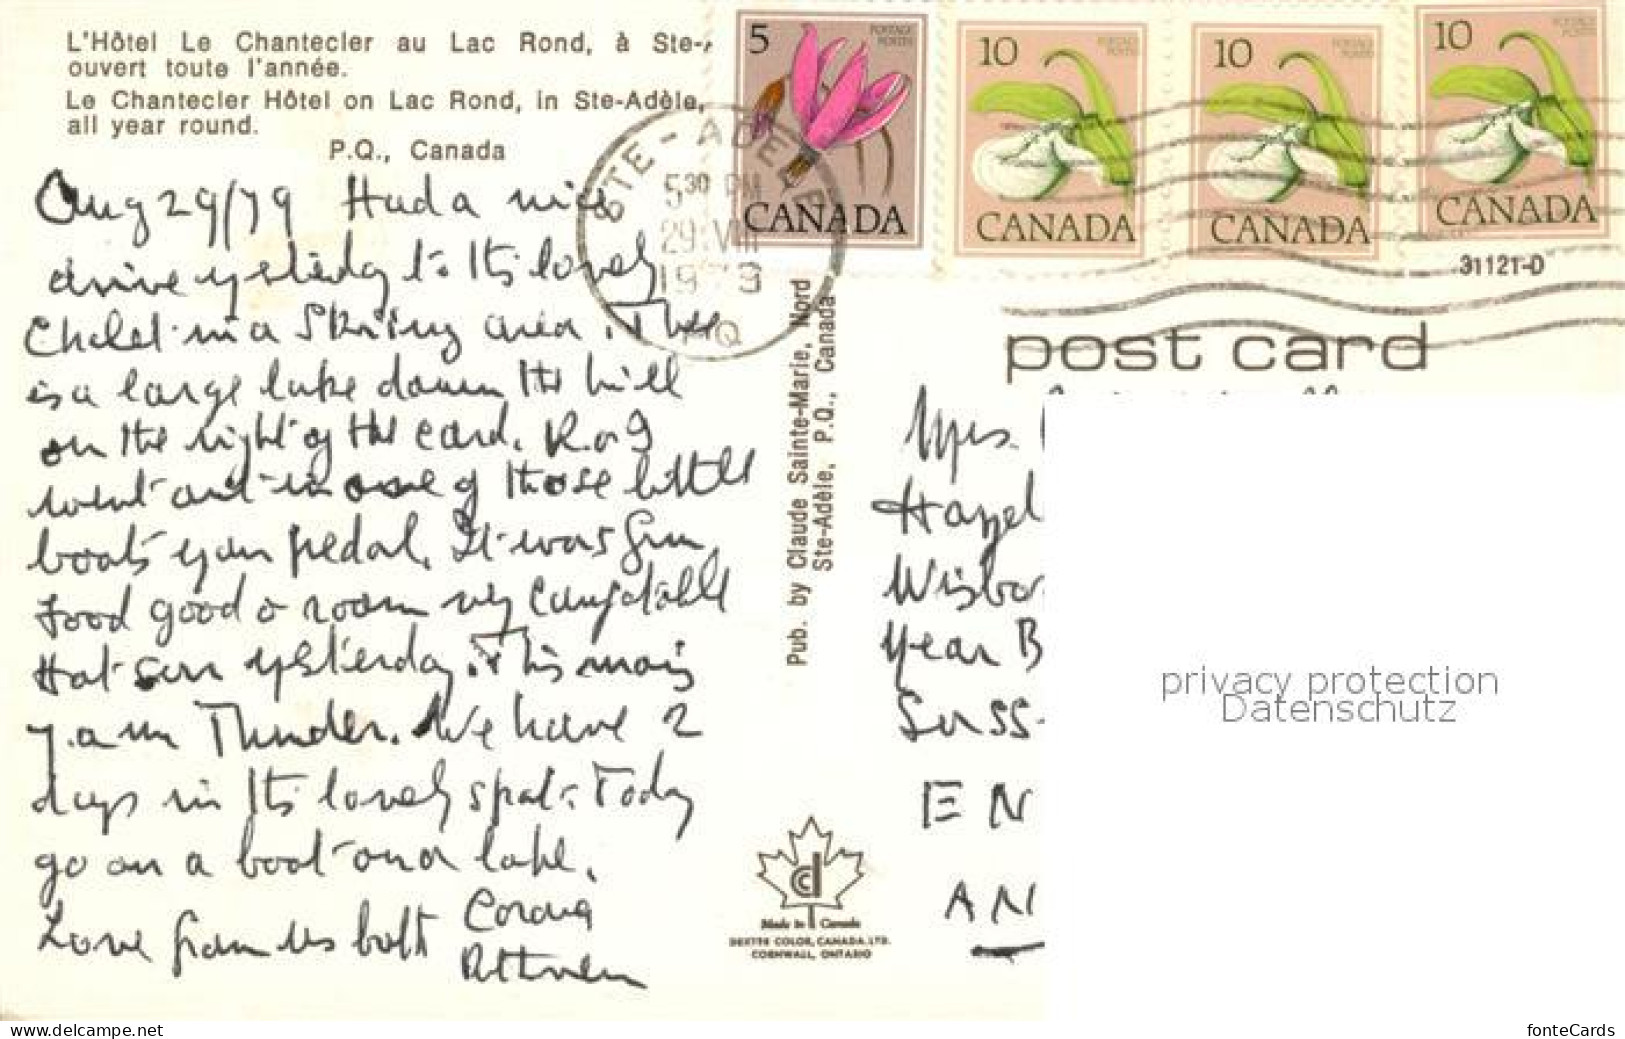 L'Hôtel Le Chantecler au Lac Rond, à Ste-
ouvert toute l'année.
Le Chantecler Hôtel on Lac Rond, in Ste-Adèle,
all year round.
P.Q., Canada
Aug 29/79 Had a nice
drive yesterday to this lovely
Chalet in a Skiing area. There
is a large lake down the hill
on the right of the card. R. & I
went out in one of those little
boats you pedal. It was fun
Food good & room very comfortable
Hot sun yesterday. This
7. a m Thunder. We have 2
days in this lovely spot. Today
go on a boat lake.
Love from us both
5 POSTAGE POSTES CANADA
10 POSTAGE POSTES CANADA
10 POSTAGE POSTES CANADA
10 POSTAGE POSTES CANADA
STE-ADELE
5 30 PM
29 VIII
1979
PQ
31121-D
post card
Pub. by Claude Sainte-Marie, Nord
Ste-Adèle, P.Q., Canada
Mrs.
Hazel
Wisbo
Near B
Suss
EN
AN
privacy protection
Datenschutz
cd
Made in Canada
DEXTER COLOR, CANADA. LTD.
CORNWALL, ONTARIO
www.delcampe.net
fonteCards